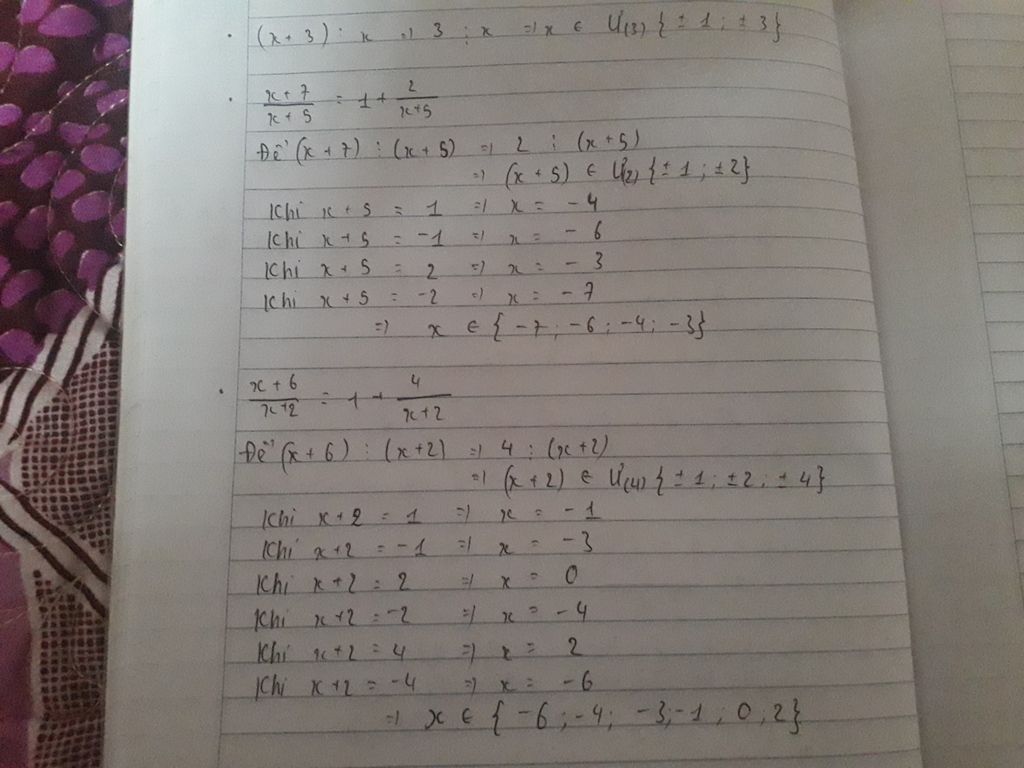 . (x+3) ⋮ x => 3 ⋮ x => x ∈ Ư(3) {± 1 ; ± 3}
. x + 7 / x + 5 = 1 + 2 / x+5
Để (x + 7) ⋮ (x + 5) => 2 ⋮ (x + 5)
=> (x + 5) ∈ Ư(2) {± 1 ; ±2}
Khi x + 5 = 1 => x = - 4
Khi x + 5 = -1 => x = - 6
Khi x + 5 = 2 => x = - 3
Khi x + 5 = -2 => x = - 7
=> x ∈ { -7 ; -6 ; -4 ; -3}
. x + 6 / x +2 = 1 + 4 / x + 2
Để (x + 6) ⋮ (x+2) => 4 ⋮ (x+2)
=> (x + 2) ∈ Ư(4) { ± 1 ; ± 2 ; ± 4}
Khi x + 2 = 1 => x = - 1
Khi x+2 = -1 => x = -3
Khi x + 2 = 2 => x = 0
Khi x +2 = -2 => x = -4
Khi x+2 = 4 => x = 2
Khi x +2 = -4 => x = -6
=> x ∈ { -6 ; -4 ; -3 ; -1 ; 0 ; 2}